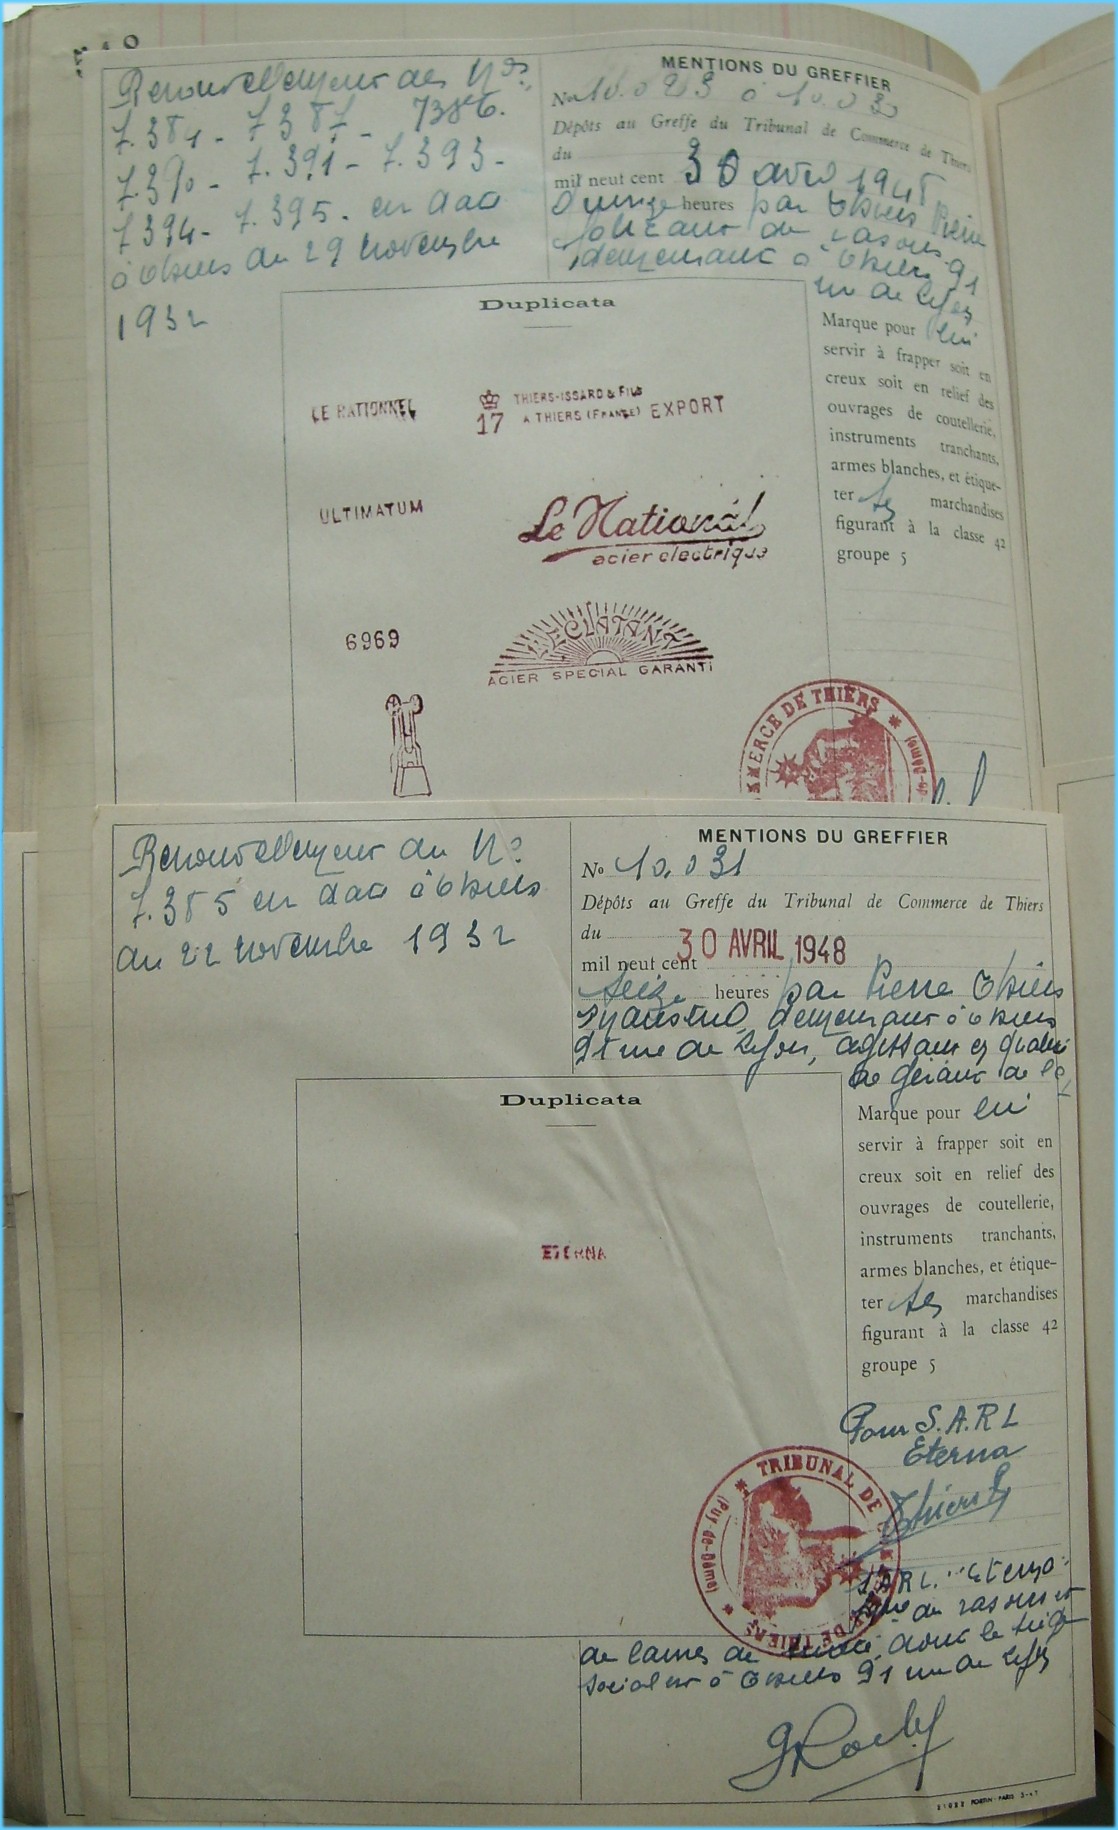 Renouvellement des Nos
7.384 - 7387 - 7386.
7.390 - 7.391 - 7.393 -
7394 - 7.395. en date
à Thiers du 29 novembre
1932
MENTIONS DU GREFFIER
No 10.023 à 10.030
Dépôts au Greffe du Tribunal de Commerce de Thiers
du
mil neuf cent 30 avril 1948
heures par Thiers Pierre
fabricant de rasoirs
demeurant à Thiers 91
rue de Lyon
Duplicata
Marque pour lui
servir à frapper soit en
creux soit en relief des
ouvrages de coutellerie,
instruments tranchants,
armes blanches, et étique-
ter ses marchandises
figurant à la classe 42
groupe 5
LE RATIONNEL
17 THIERS-ISSARD & FILS
A THIERS (FRANCE) EXPORT
ULTIMATUM
Le National
acier electrique
6969
L'ECLATANT
ACIER SPECIAL GARANTI
COMMERCE DE THIERS
Renouvellement du No
7.385 en date à Thiers
du 22 novembre 1932
MENTIONS DU GREFFIER
No 10.031
Dépôts au Greffe du Tribunal de Commerce de Thiers
du
mil neuf cent 30 AVRIL 1948
seize heures par Pierre Thiers
industriel, demeurant à Thiers
91 rue de Lyon, agissant en qualité
de gérant de la
Duplicata
Marque pour lui
servir à frapper soit en
creux soit en relief des
ouvrages de coutellerie,
instruments tranchants,
armes blanches, et étique-
ter ses marchandises
figurant à la classe 42
groupe 5
ETERNA
Pour S.A.R.L
Eterna
Thiers P
TRIBUNAL DE
DE THIERS
(Puy-de-Dôme)
S.A.R.L. "Eterna"
de rasoirs et
de lames de dont le siège
social est à Thiers 91 rue de Lyon